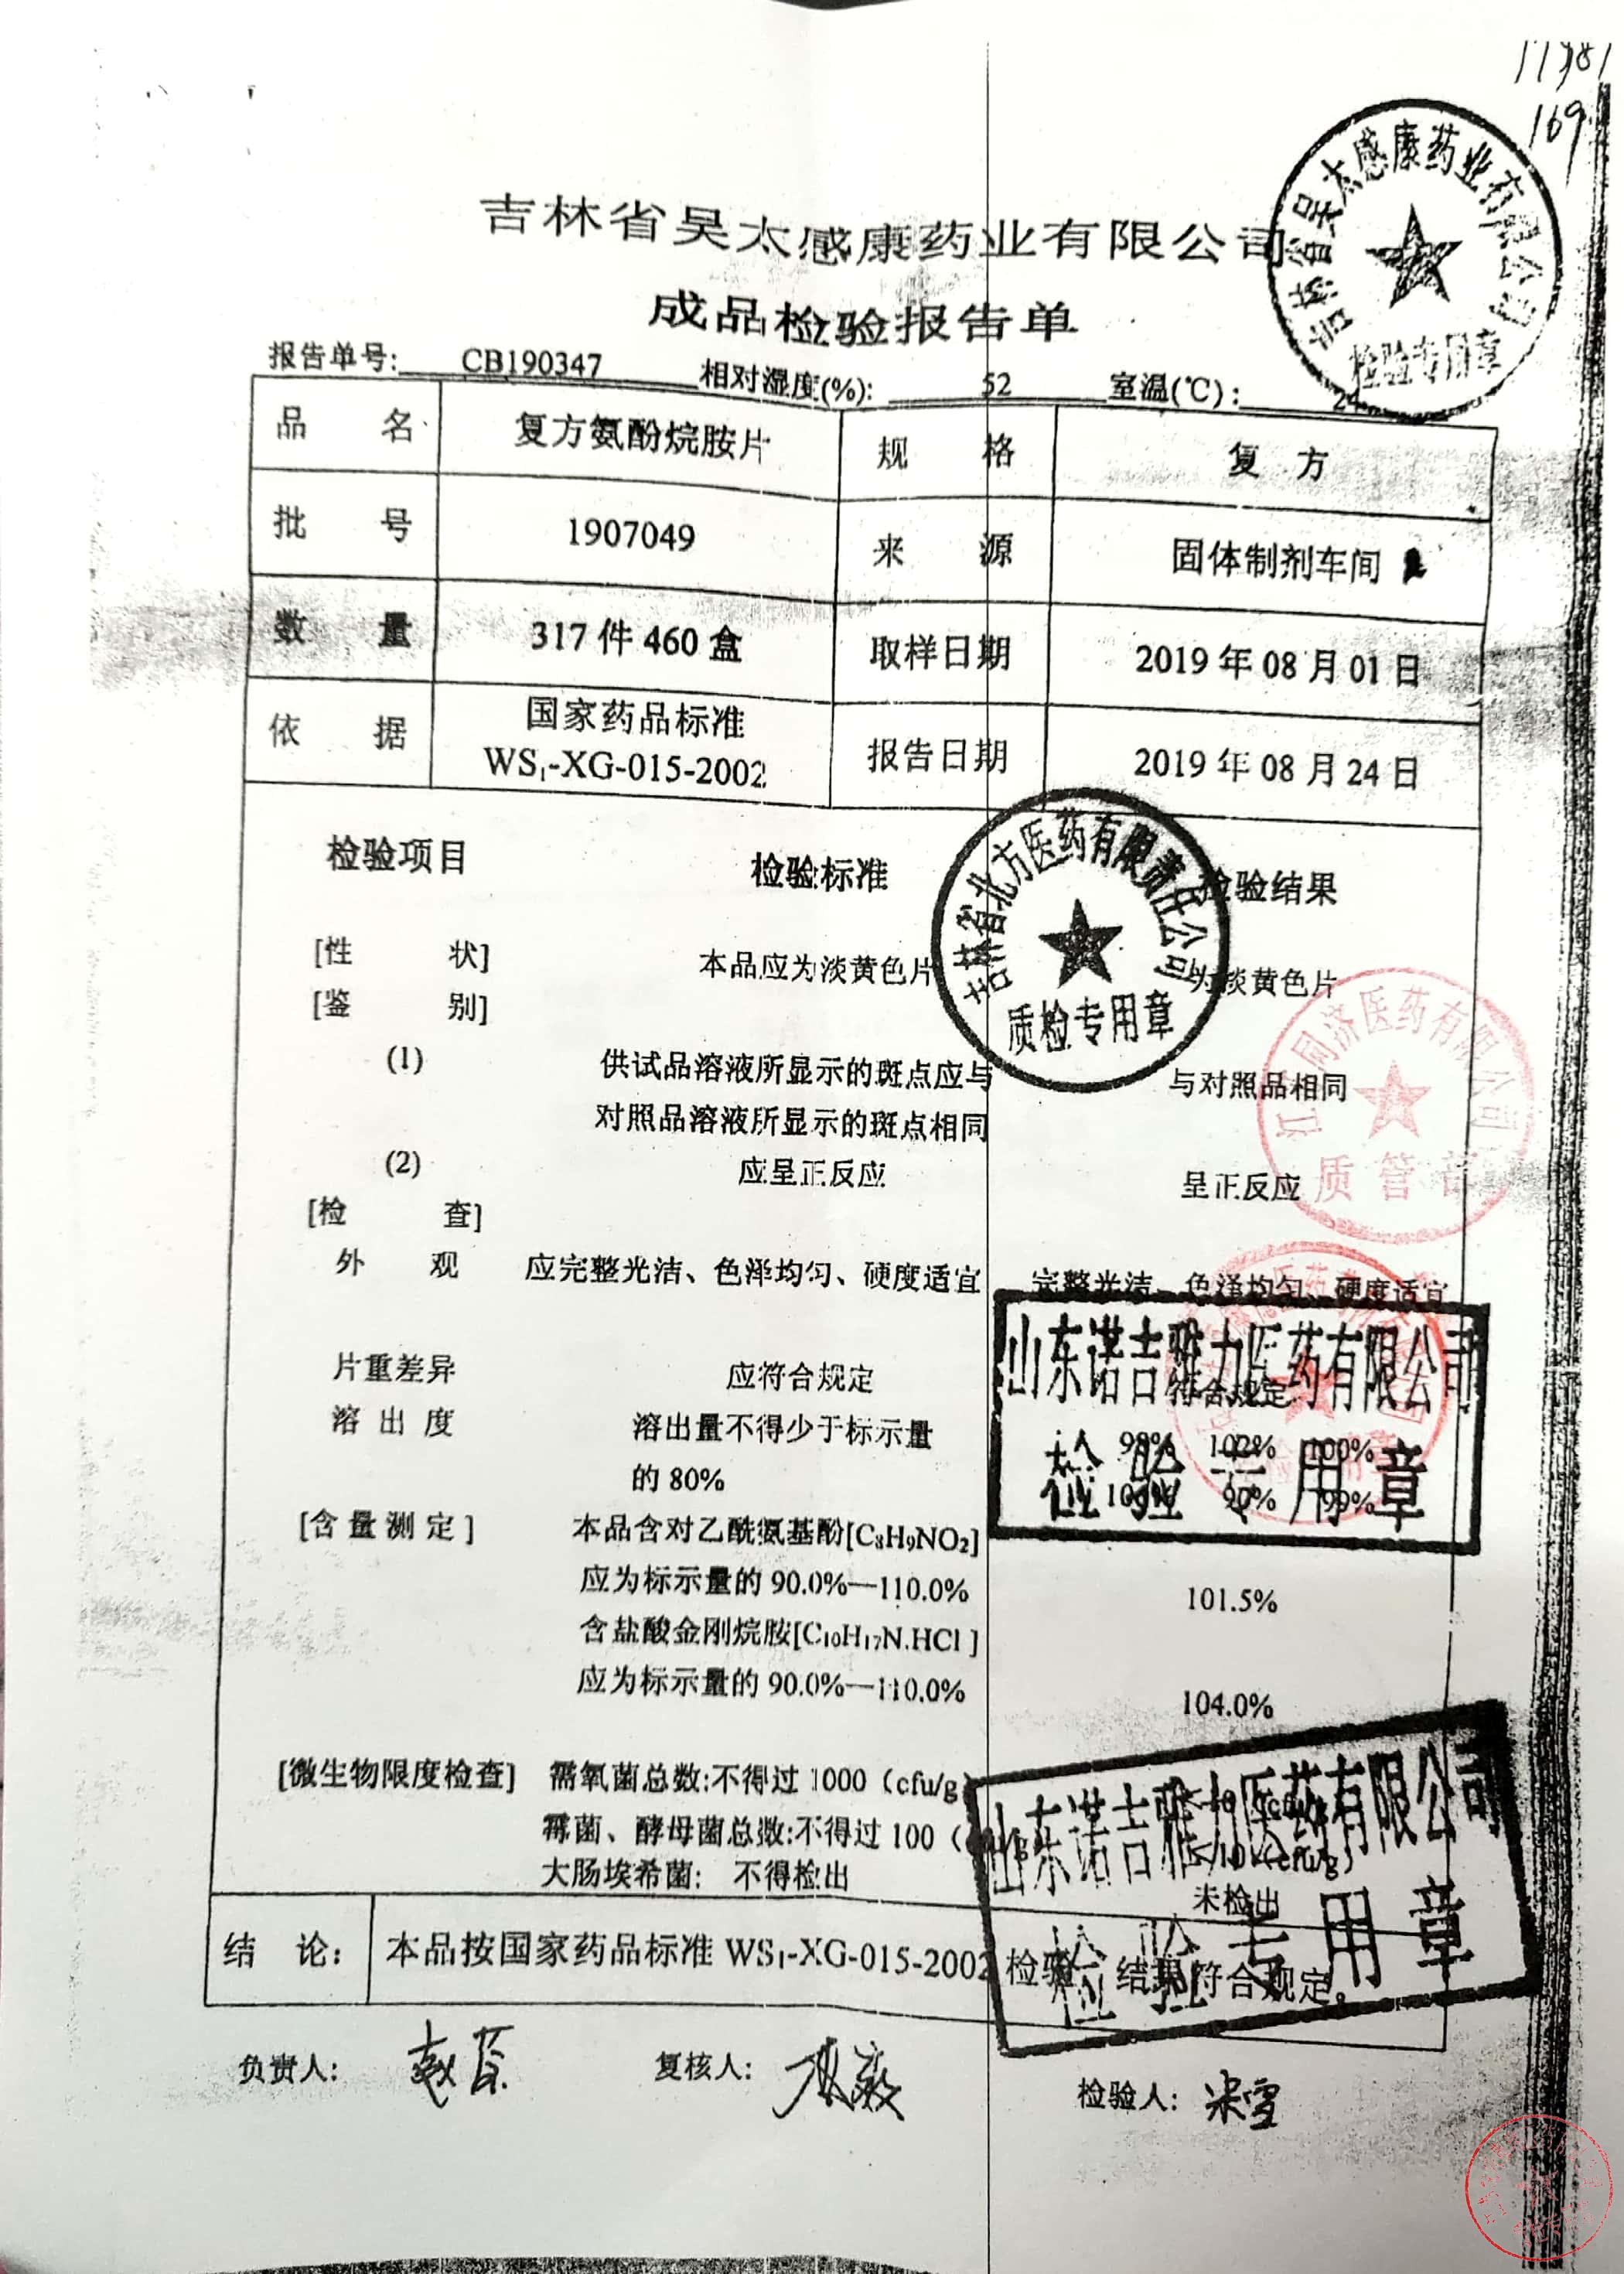 11981
169
吉林省吴太感康药业有限公司
检验专用章
吉林省吴太感康药业有限公司
成品检验报告单
报告单号: CB190347 相对湿度(%): 52 室温(℃):
品 名 复方氨酚烷胺片 规 格 复 方
批 号 1907049 来 源 固体制剂车间
数 量 317 件 460 盒 取样日期 2019 年 08 月 01 日
依 据 国家药品标准 WS₁-XG-015-2002 报告日期 2019 年 08 月 24 日
吉林省北方医药有限责任公司
质检专用章
检验项目 检验标准 检验结果
[性 状] 本品应为淡黄色片 为淡黄色片
[鉴 别]
(1) 供试品溶液所显示的斑点应与 与对照品相同
对照品溶液所显示的斑点相同
(2) 应呈正反应 呈正反应
质管部
[检 查]
外 观 应完整光洁、色泽均匀、硬度适宜 完整光洁、色泽均匀、硬度适宜
山东诺吉雅力医药有限公司
检验专用章
片重差异 应符合规定 符合规定
溶 出 度 溶出量不得少于标示量 102% 100%
的 80% 99%
[含 量 测 定 ] 本品含对乙酰氨基酚[C₈H₉NO₂]
应为标示量的 90.0%—110.0% 101.5%
含盐酸金刚烷胺[C₁₀H₁₇N.HCl ]
应为标示量的 90.0%—110.0% 104.0%
山东诺吉雅力医药有限公司
检验专用章
[微生物限度检查] 需氧菌总数:不得过 1000（cfu/g
霉菌、酵母菌总数:不得过 100（cfu/g） <10 (cfu/g)
大肠埃希菌: 不得检出 未检出
结 论: 本品按国家药品标准 WS₁-XG-015-2002 检验 结果符合规定。
负责人: 复核人: 检验人: 宋雪